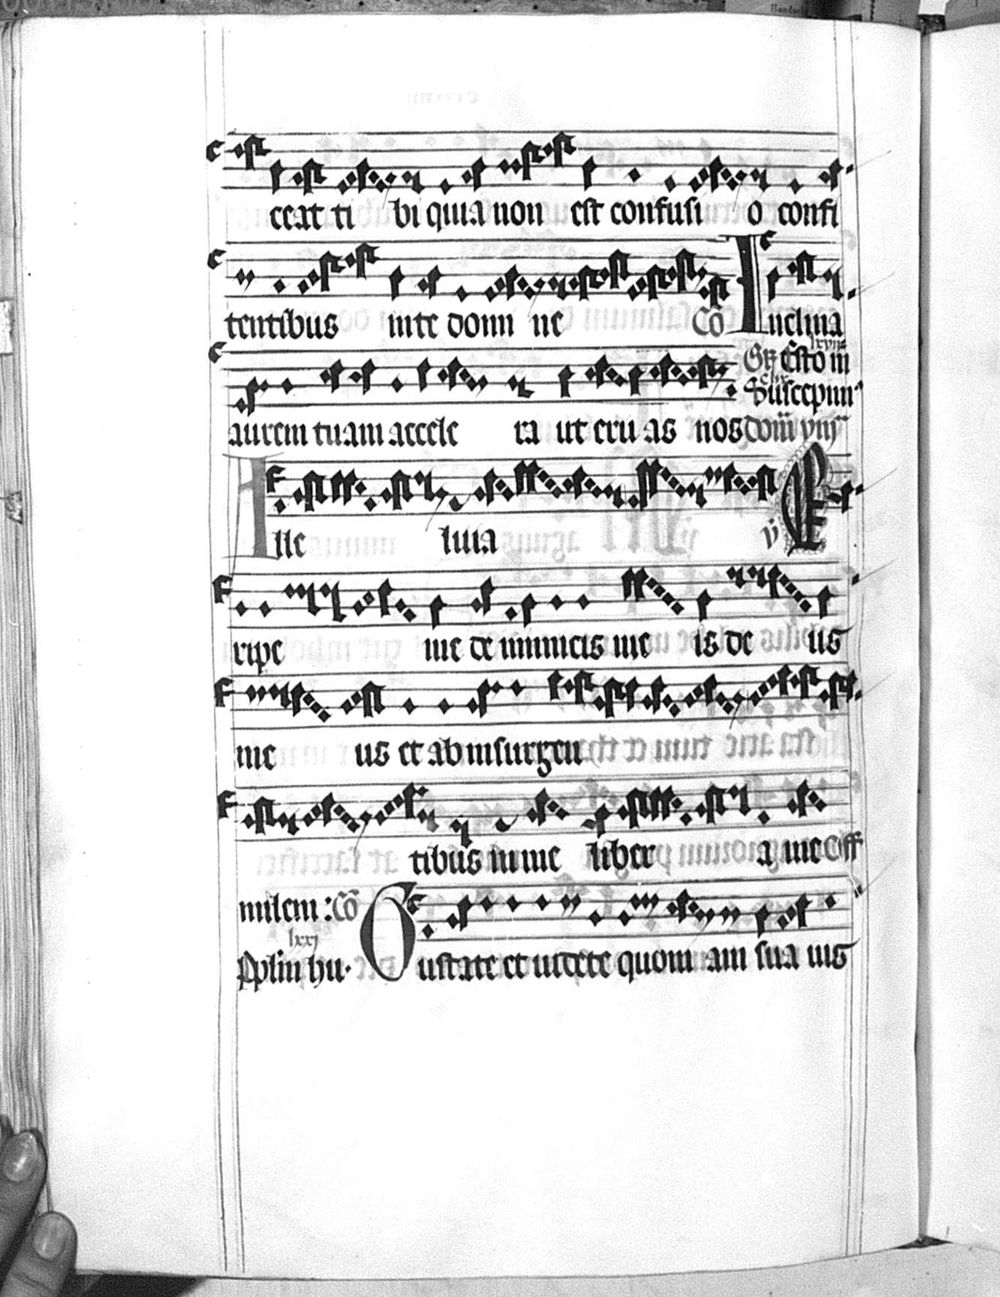 ceat ti bi quia non est confusi o confi
tentibus in te domi ne Cō Inclina
Gr Esto m
lxviij
Suscepim
aurem tuam accele ra ut eru as nos dom viij
Alle luia v E
ripe me de inimicis me is de us
me us et ab insurgen
tibus in me liber a me Off
milem : Cō Gustate et videte quoni am sua uis
lxxj
Pplm hu.